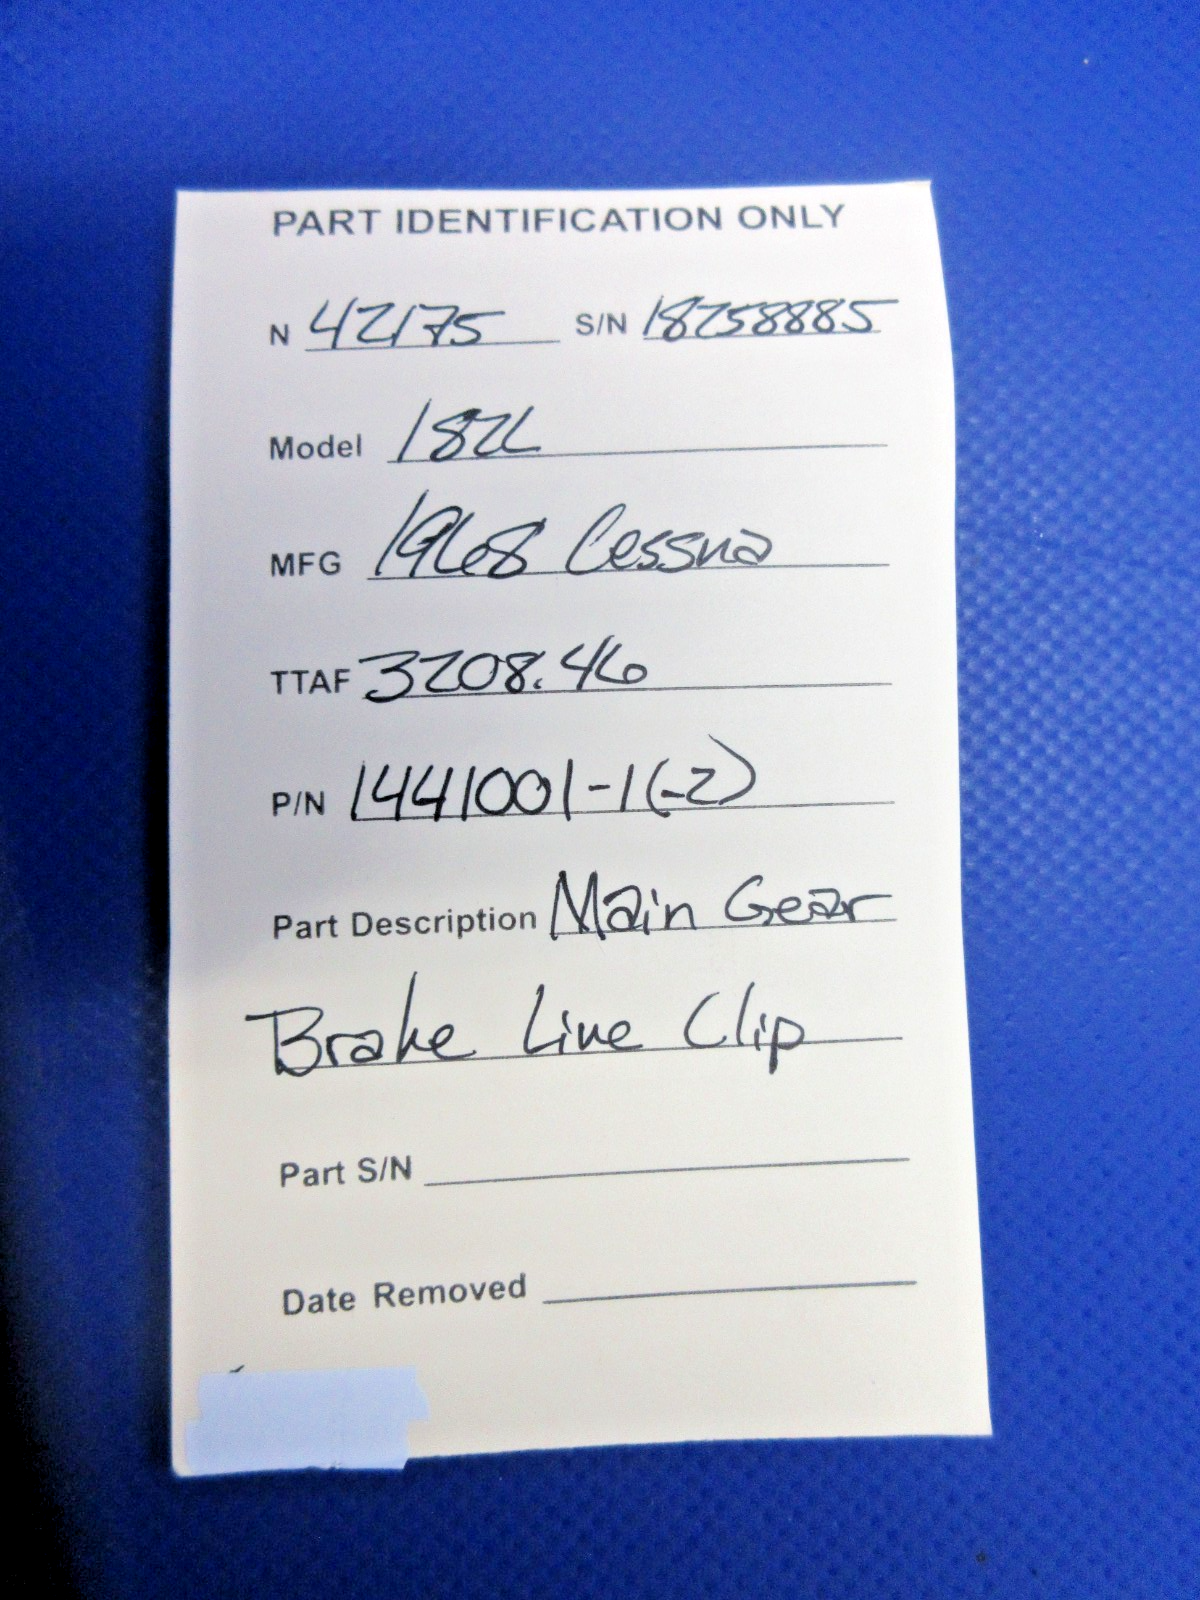 PART IDENTIFICATION ONLY
N 42175 S/N 18258885
Model 182L
MFG 1968 Cessna
TTAF 3208.46
P/N 1441001-1(-2)
Part Description Main Gear
Brake Line Clip
Part S/N
Date Removed